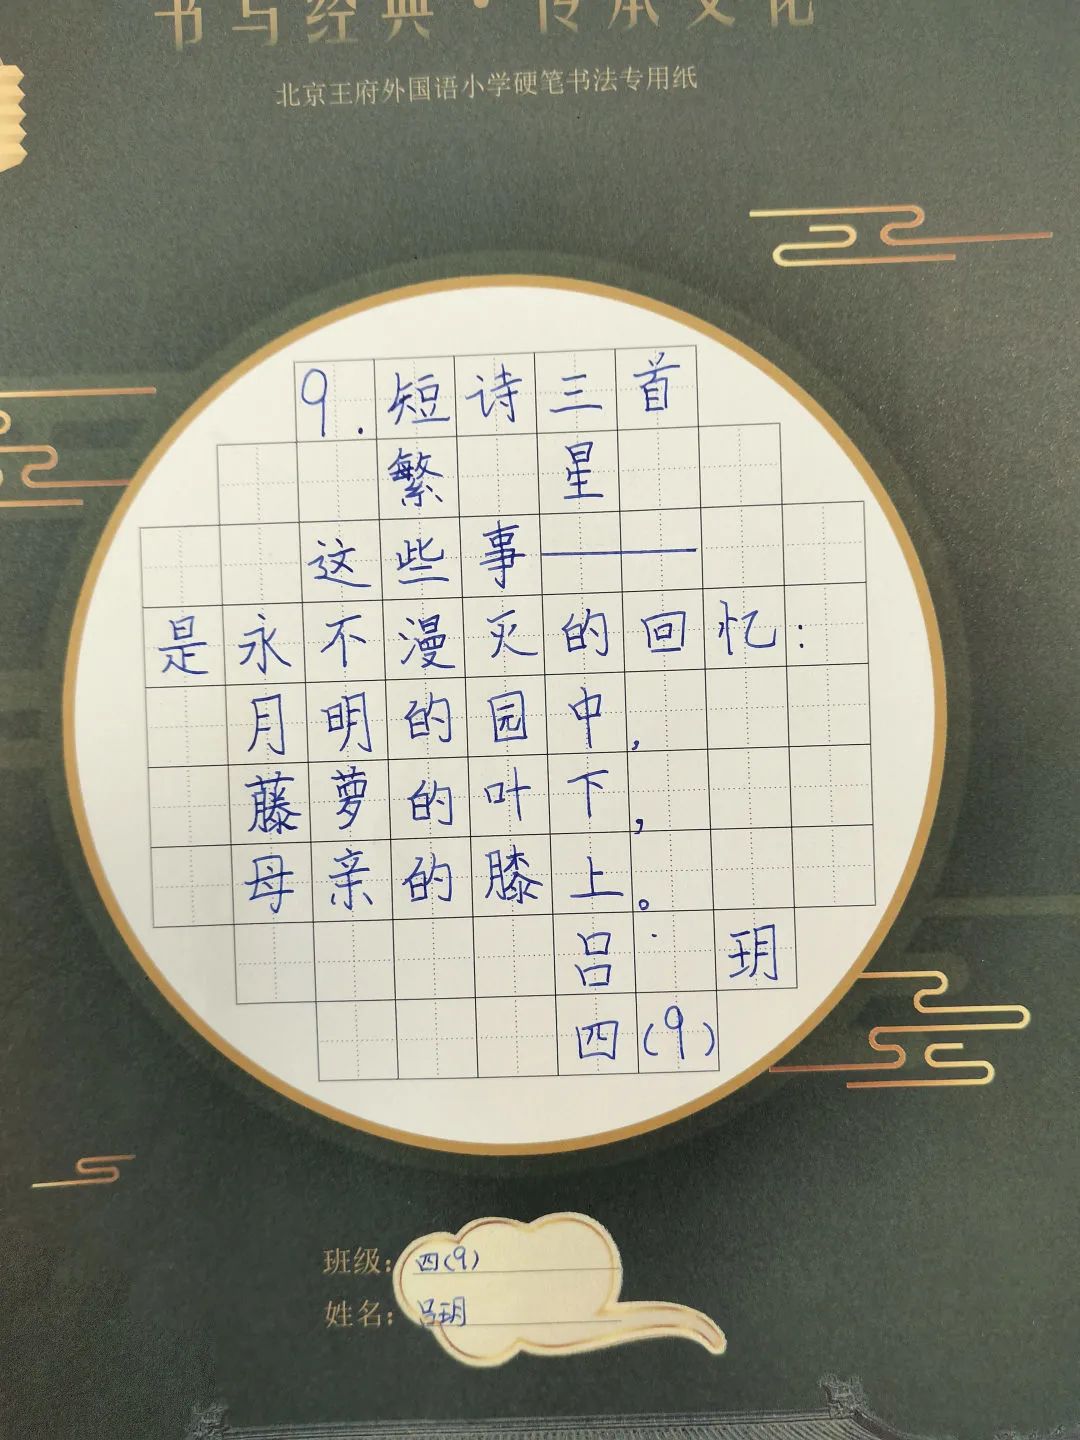 书写经典·传承文化
北京王府外国语小学硬笔书法专用纸
9.短诗三首
繁 星
这些事——
是永不漫灭的回忆：
月明的园中，
藤萝的叶下，
母亲的膝上。
吕 玥
四(9)
班级：四(9)
姓名：吕玥